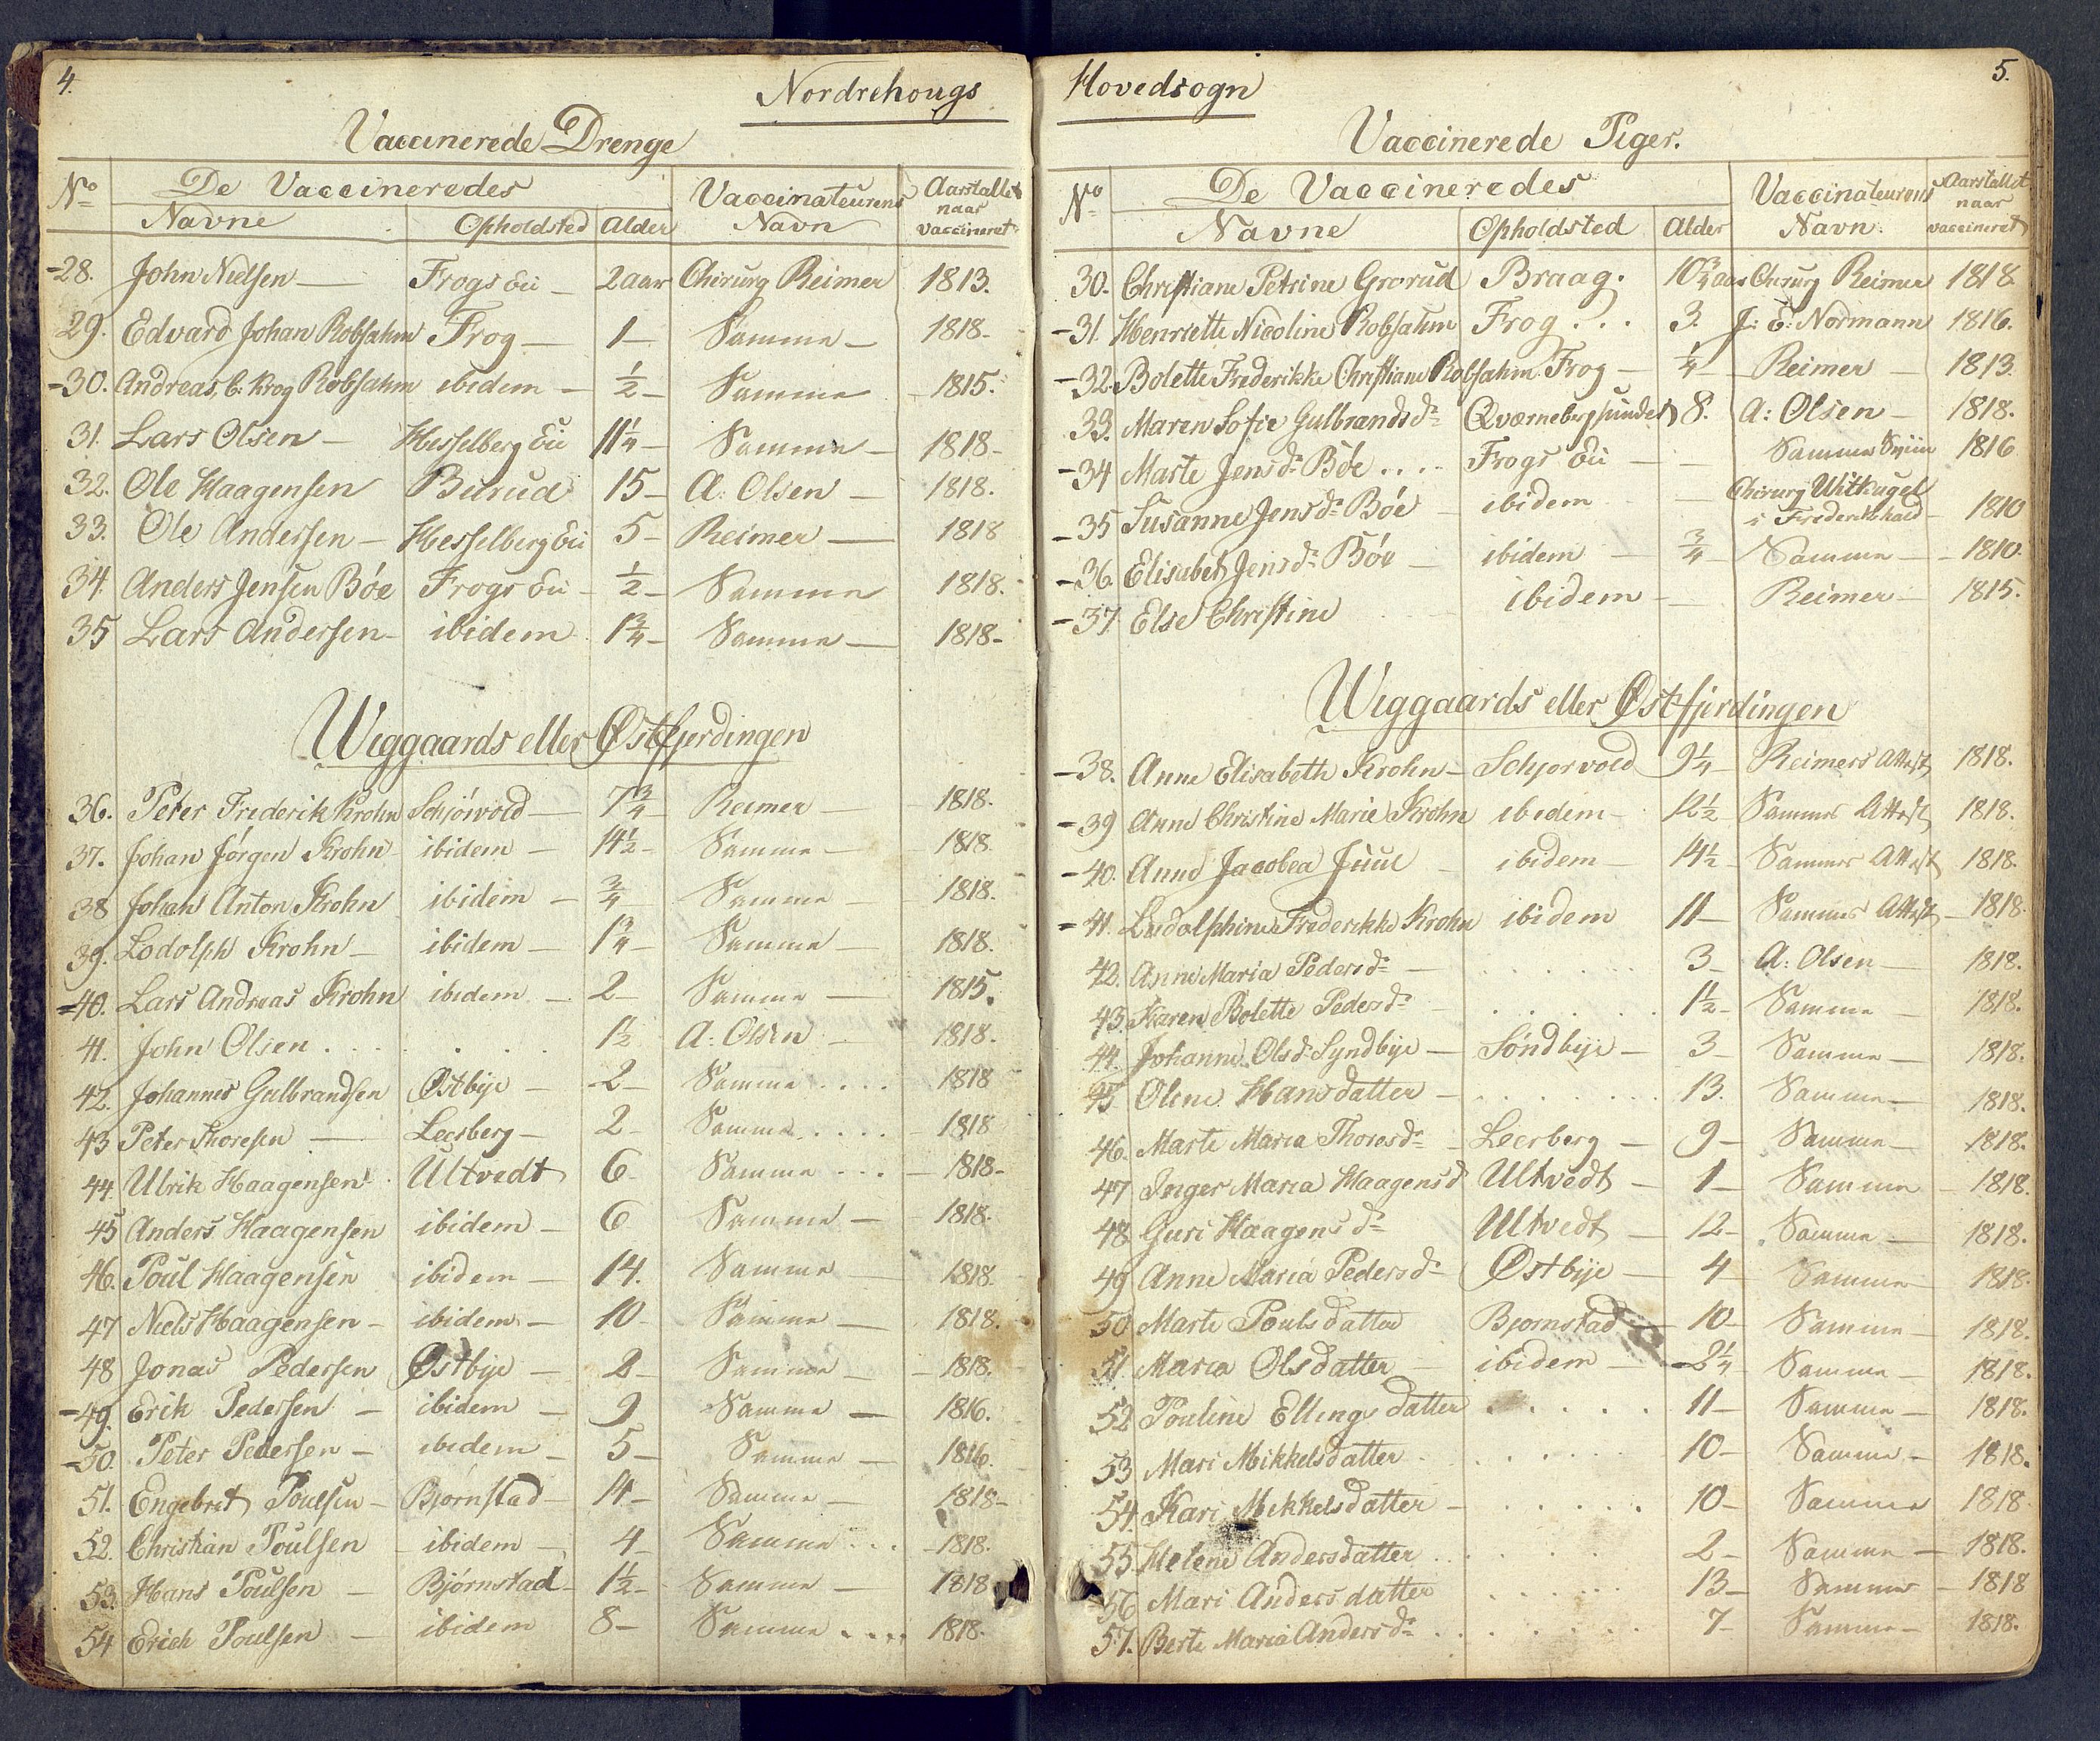 4.
Nordrehougs
Vaccinerede Drenge
No De Vaccineredes Vaccinateurens Aarstallet
Navne Opholdsted Alder Navn naar vaccineret
-28. John Nielsen — Frogs Eie — 2 aar Chirurg Reimer 1813.
29. Edvard Johan Robsahm Frog — 1 — Samme — 1818-
-30. Andreas C. Krog Robsahm ibidem — ½ — Samme — 1815.
31. Lars Olsen — Hesselberg Eie 11¼ — Samme — 1818-
32. Ole Haagensen Burud 15 — A: Olsen — 1818.
33. Ole Andersen — Hesselberg Eie 5 — Reimer — 1818
34. Anders Jensen Bøe Frogs Eie — ½ — Samme 1818.
35 Lars Andersen — ibidem 1¾ — Samme — 1818-
Wiggaards eller Østfjerdingen
36. Peter Frederik Krohn Schjørvold — 7¾ Reimer — 1818.
37. Johan Jørgen Krohn ibidem — 14½ — Samme — 1818.
38 Johan Anton Krohn ibidem — ¾ Samme 1818.
39. Lodolph Krohn — ibidem — 1¾ — Samme — 1818.
-40. Lars Andreas Krohn ibidem — 2 — Samme — 1815.
41. John Olsen . . . . . . 1½ A: Olsen — 1818.
42. Johannes Gulbrandsen Østbye — 2 — Samme . . . . 1818
43 Peter Thoresen — Leerberg — 2 — Samme . . . . 1818
44. Ulrik Haagensen Ultvedt 6 — Samme . . . — 1818-
45 Anders Haagensen ibidem — 6 Samme — 1818.
46. Poul Haagensen ibidem — 14. Samme 1818.
47 Niels Haagensen — ibidem — 10 — Samme — 1818.
48 Jonas Pedersen Østbye — 2 — Samme — 1818.
-49. Erik Pedersen — ibidem — 9 Samme — 1816.
-50. Peter Pedersen — ibidem — 5 — Samme — 1816.
51. Engebret Poulsen — Bjørnstad — 14 — Samme — 1818-
52. Christian Poulsen — ibidem — 4 — Samme . . . — 1818.
53. Hans Poulsen — Bjørnstad — 1½ — Samme — 1818
54 Erich Poulsen — ibidem 8 — Samme . . . . 1818.
Hovedsogn
5.
Vaccinerede Piger.
No De Vaccineredes Vaccinateurens Aarstallet
Navne Opholdsted Alder Navn. naar vaccineret
30. Christiane Petrine Grorud Braag. 10¾ aar Chirurg Reimer 1818
-31. Henriette Nicoline Robsahm Frog . . . 3. J: E: Normann 1816.
-32. Bolette Frederikke Christiane Robsahm Frog — ¼ — Reimer — 1813.
33. Maren Sofie Gulbrandsdr Qværnebergsundet 8. A: Olsen — 1818.
-34 Marte Jensdr Bøe . . . . Frogs Eie — — Sammes 1816
-35 Susanne Jensdr Bøe — ibidem — Chirurg i Frederikshald — 1810
-36. Elisabeth Jensdr Bøe — ibidem — ¾ — Samme — 1810.
-37 Else Christine ibidem — Reimer — 1815.
Wiggaards eller Østfjerdingen
-38. Anne Elisabeth Krohn — Schjorvold 9¼ Reimers Attest 1818.
-39 Anne Christine Marie Krohn ibidem — 12½ Sammes Attest 1818.
-40. Anne Jacobea Juul ibidem — 14½ — Sammes Attest 1818.
-41. Ludolphine Frederikke Krohn ibidem 11 — Sammes Attest — 1818.
42. Anne Maria Pedersdr — . . . . . . 3 — A: Olsen — 1818.
43. Karen Bolette Pedersdr — . . . . . . 1½ — Samme — 1818.
44. Johanne Olsd. Syndbye — Søndbye — 3 — Samme — 1818.
45 Oline Hansdatter — . . . . . . . 13. Samme — 1818.
46. Marte Maria Thoresdr — Leerberg — 9 — Samme — 1818.
47 Inger Maria Haagensd Ultvedt — 1 — Samme — 1818.
48 Guri Haagensdr Ultvedt — 12 — Samme — 1818.
49 Anne Maria Pedersdr Østbye — 4 Samme 1818.
50 Marte Poulsdatter Bjornstad — 10 — Samme — 1818.
51. Maria Olsdatter — ibidem — 2¼ Samme — 1818.
52 Pouline Ellingsdatter . . . . . 11 — Samme — 1818.
53 Mari Mikkelsdatter . . . . . 10 — Samme — 1818.
54. Kari Mikkelsdatter — . . . . . 10 — Samme 1818
55 Helene Andersdatter . . . . . 2 — Samme — 1818.
56 Mari Andersdatter . . . . . 13 — Samme — 1818
57. Berte Maria Andersdr . . . . . . 7 — Samme — 1818.